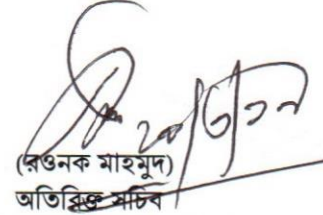 (রওনক মাহমুদ)
অতিরিক্ত সচিব